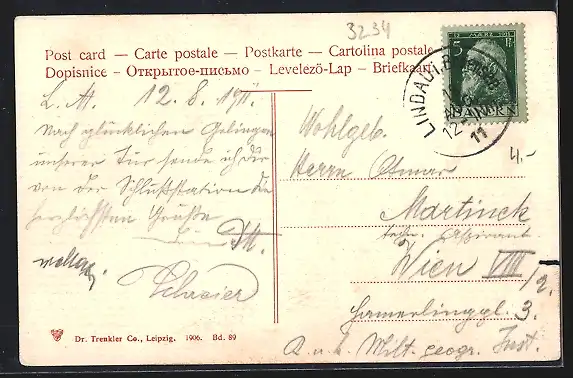 3234
Post card — Carte postale — Postkarte — Cartolina postale
Dopisnice — Открытое-письмо — Levelező-Lap — Briefkaart
12 MÄRZ 1911
5 Pf
BAYERN
LINDAU i. Bodensee
12-1
11
4.-
L. M. 12. 8. 1911.
Nach glücklichem Gelingen
unserer Tur sende ich dir
von der Schlußstation die
herzlichsten Grüße
Dein
Schreier
Wohlgeb.
Herrn Otmar
Martinek
techn. Aspirant
Wien VIII/2.
Hamerlingpl. 3.
K. u. k. Milt. geogr. Inst.
Dr. Trenkler Co., Leipzig. 1906. Bd. 89